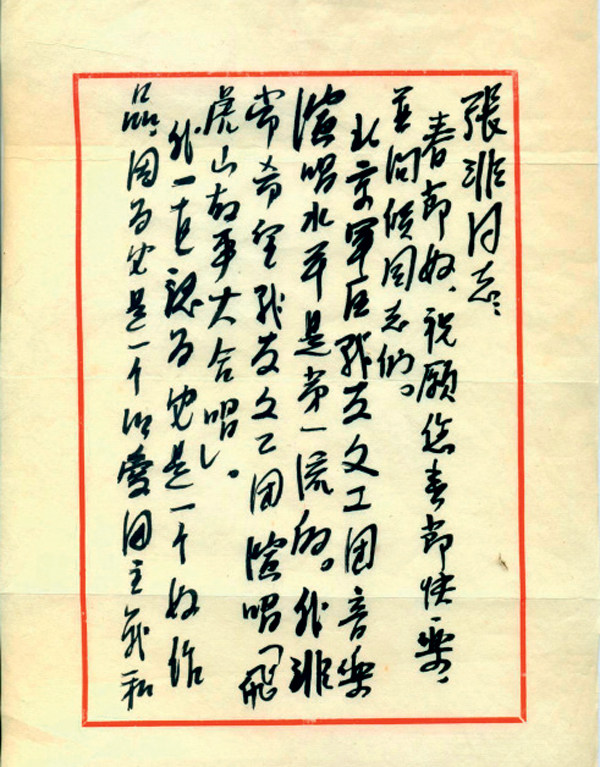 張非同志：
春節好，祝願您春節快樂，
並问候同志们。
北京軍区战友文工團音樂
演唱水平是第一流的。我非
常希望战友文工团演唱「飛
虎山故事大合唱」。
我一直認为它是一个好作
品，因为它是一个以愛国主義和